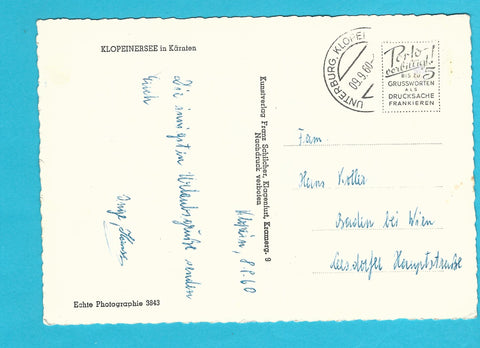 KLOPEINERSEE in Kärnten
Klopein, 8.9.60
Die innigsten Urlaubsgrüße senden
Euch
Inge, Hans
Echte Photographie 3843
Kunstverlag Franz Schilcher, Klagenfurt, Kramerg. 9
Nachdruck verboten
UNTERBURG, KLOPEI
09.9.60
Porto
bevorzugt!
BIS ZU 5
GRUSSWORTEN
ALS
DRUCKSACHE
FRANKIEREN
Fam.
Heinz Koller
Baden bei Wien
Leesdorfer Hauptstraße